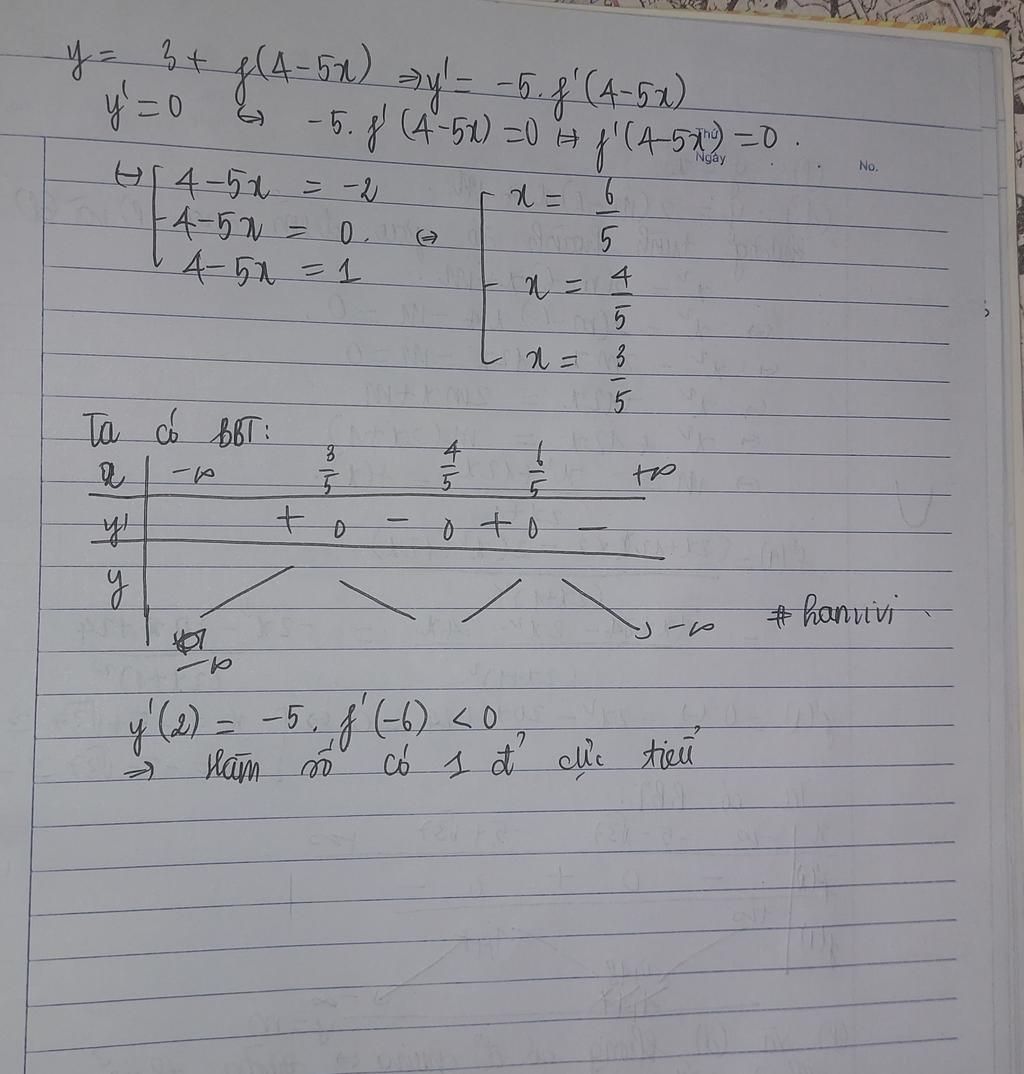 y = 3 + f(4-5x) ⇒ y' = -5. f'(4-5x)
y' = 0 ⇔ -5. f'(4-5x) = 0 ⇔ f'(4-5x) = 0 .
Thứ
Ngày
No.
⇔ [ 4-5x = -2
4-5x = 0. ⇔
4-5x = 1
[ x = 6/5
x = 4/5
x = 3/5
Ta có BBT:
x | -∞ 3/5 4/5 6/5 +∞
y' | + 0 - 0 + 0 -
y
-∞ -∞ # hanvivi .
y'(2) = -5. f'(-6) < 0
⇒ Hàm số có 1 đ' cực tiểu